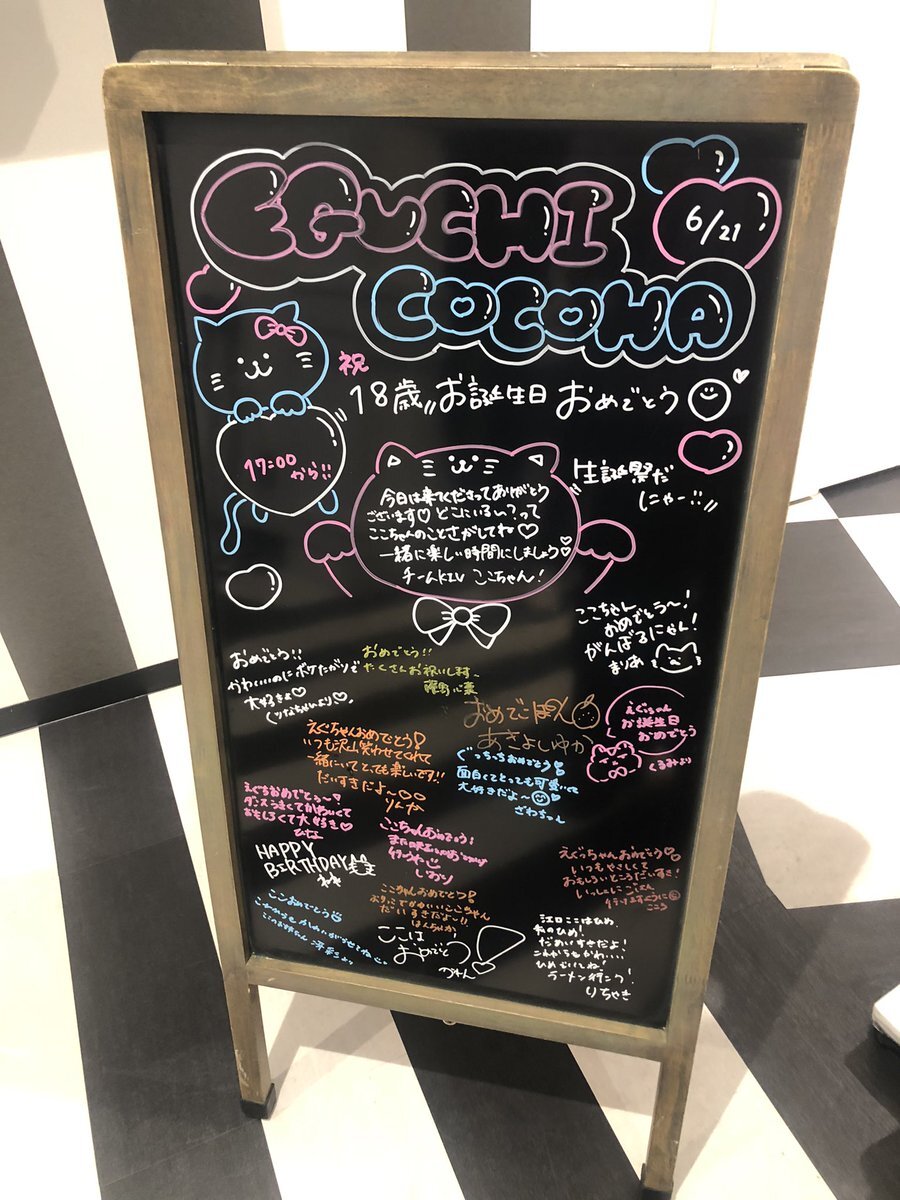 EGUCHI
COCOWA
6/21
祝
18歳 お誕生日 おめでとう
17:00
から!!
生誕祭だ
にゃー!!
今日は来てくださってありがとう
ございます♡ どこにいるい?って
ここちゃんのことさがしてね♡
一緒に楽しい時間にしましょう♡
チームKIV ここちゃん!
ここちゃん
おめでとう〜!
がんばるにゃん!
まりあ
おめでとう!!
かわいいのにボケたがりで
大好きよ♡
おめでとう!!
たくさんお祝いします
おめでほ
あきよしゆか
えぐっちゃん
お誕生日
おめでとう
くるみより
えぐちゃんおめでとう!
いつも沢山笑わせてくれて
一緒にいてとっても楽しいです!!
だいすきだよ〜
りんか
ぐっちっちおめでとう!
面白くてとっても可愛いくて
大好きだよ〜
ざわちゃん
えぐちおめでとう〜
ダンスうまくてかわいくて
おもしろくて大好き♡
ひな
ここちゃんおめでとう!
しおり
HAPPY
BIRTHDAY
えぐっちゃんおめでとう♡
いつもやさしくて
おもしろいところだいすき!
いっしょにごはん
行けますように
こころ
ここちゃんおめでとう!
だいすきだよ〜
ここおめでとう
ここは
おめでとう!
江口ここはひめ
だいすきだよ!
ひめらいしね!
ラーメン行こう!
りちゃき